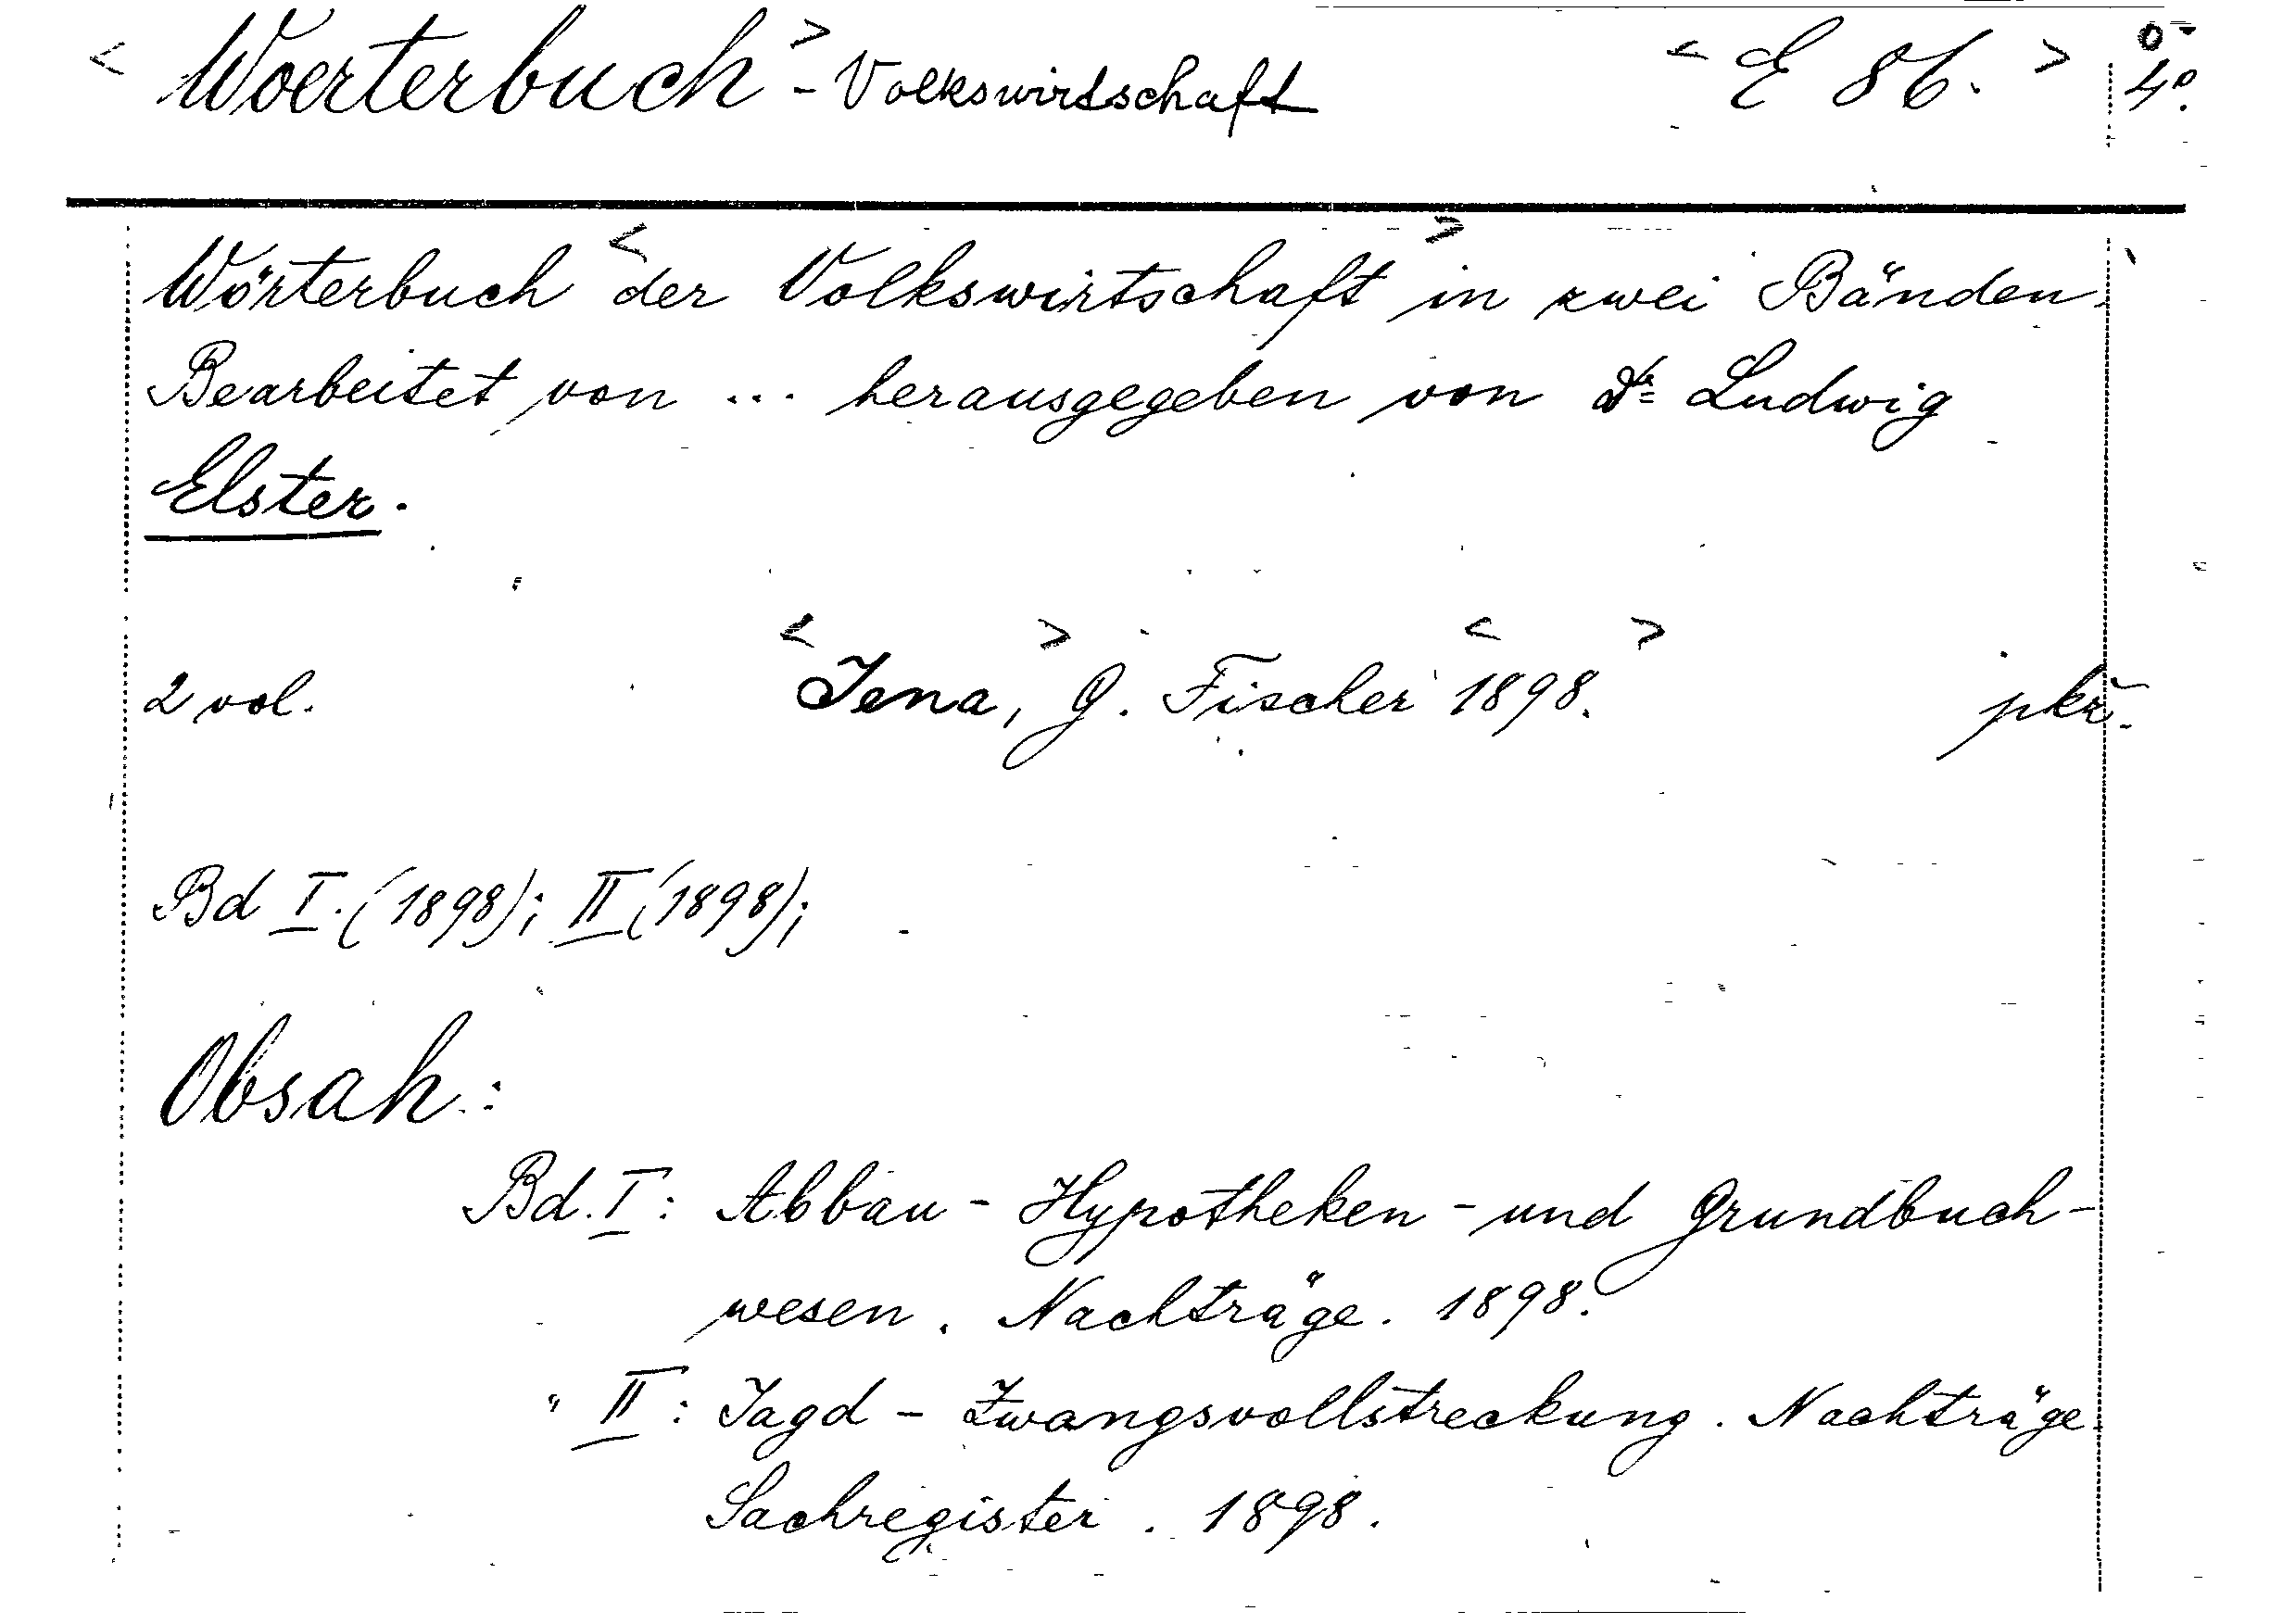 < Woerterbuch > - Volkswirtschaft < E 86. > 4º.
Wörterbuch < der Volkswirtschaft > in zwei Bänden.
Bearbeitet von ... herausgegeben von Dr Ludwig
Elster.
2 vol. < Jena, > G. Fischer < 1898. > pkř.
Bd I. (1898); II (1898);
Obsah:
Bd. I: Abbau - Hypotheken - und Grundbuch-
wesen. Nachträge. 1898.
" II: Jagd - Zwangsvollstreckung. Nachträge.
Sachregister. 1898.